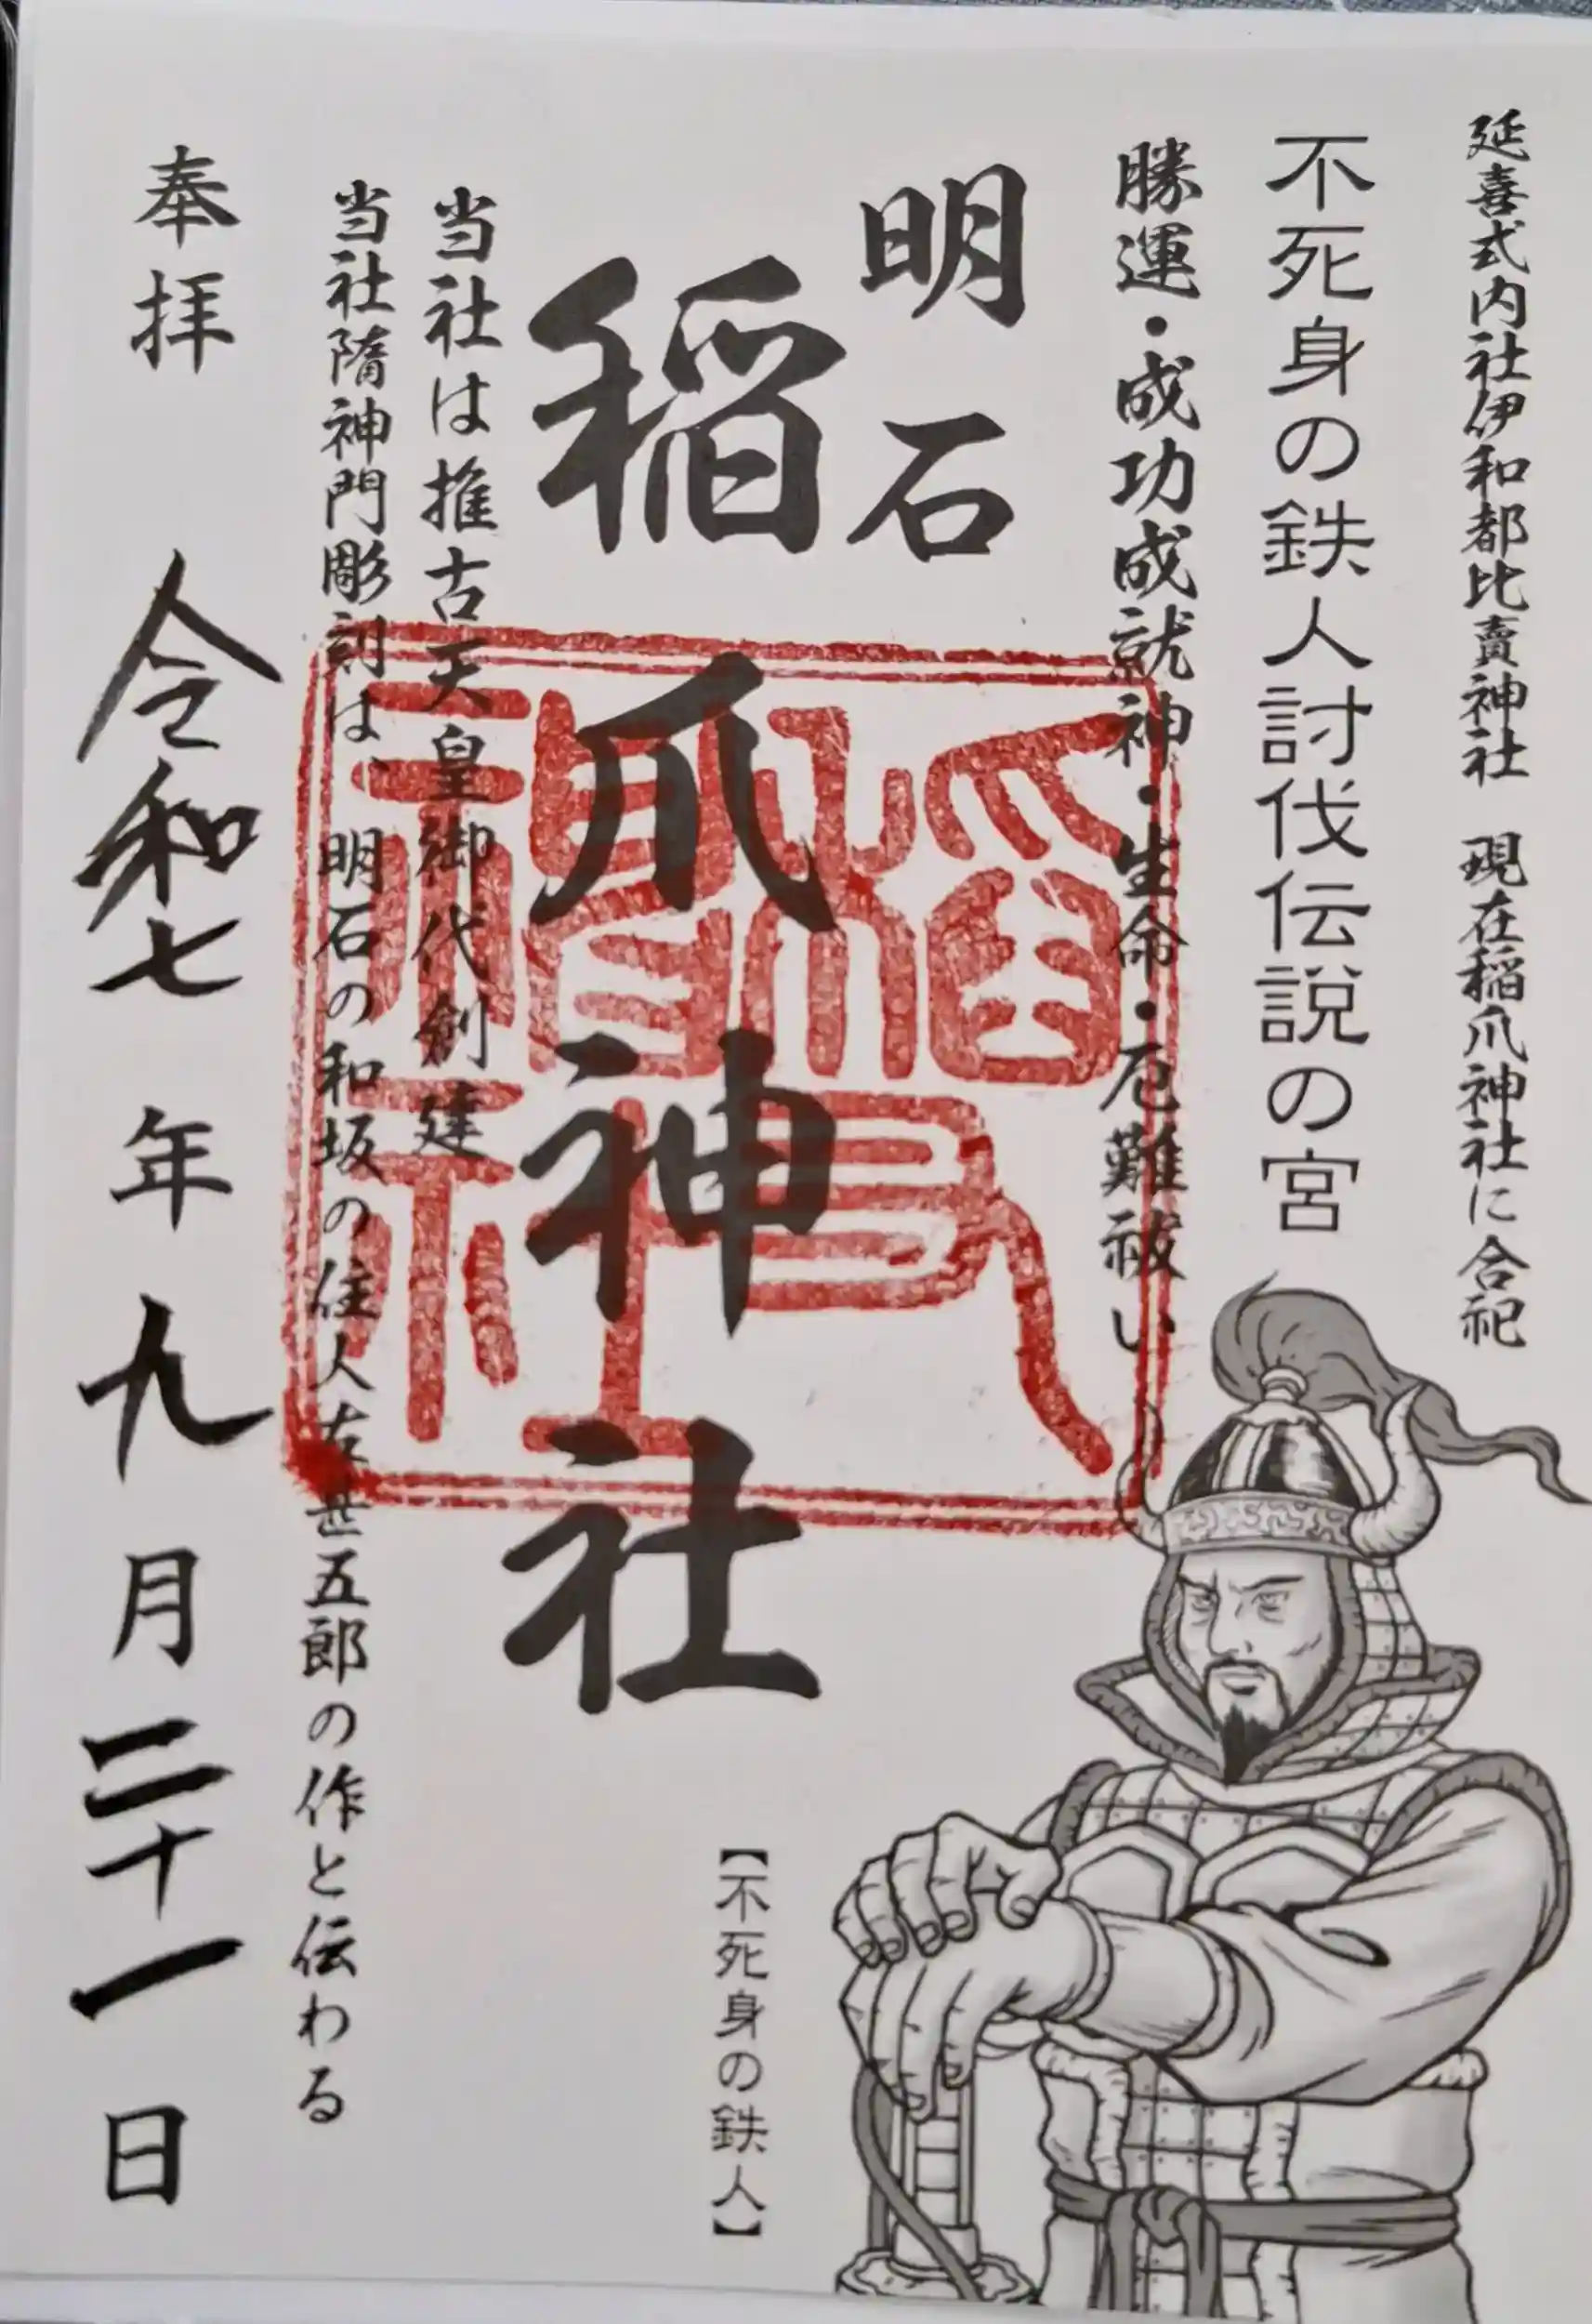 延喜式内社伊和都比賣神社　現在稲爪神社に合祀
不死身の鉄人討伐伝説の宮
勝運・成功成就神・生命・厄難祓い
明石
稲爪神社
当社は推古天皇御代創建
当社隋神門彫刻は、明石の和坂の住人左甚五郎の作と伝わる
奉拝　令和七年九月二十一日
【不死身の鉄人】
稲爪神社